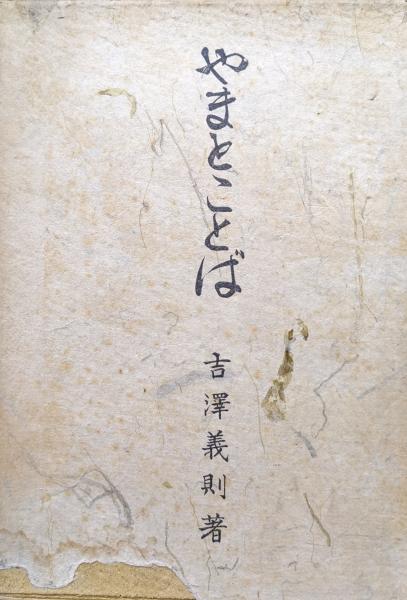 やまとことば
吉澤義則著